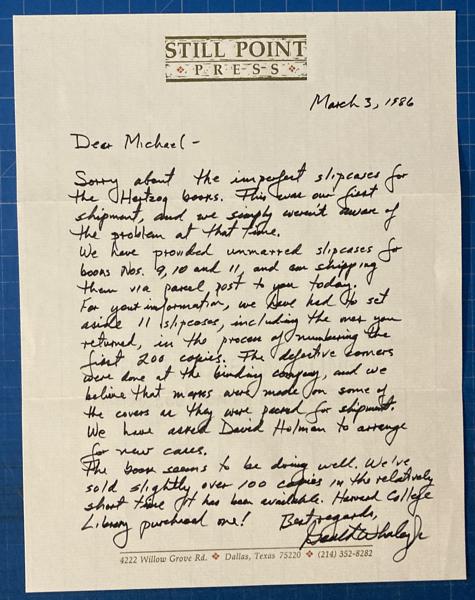 STILL POINT
PRESS
March 3, 1986
Dear Michael -
Sorry about the imperfect slipcases for
the Hertzog books. This was our first
shipment, and we simply weren't aware of
the problem at that time.
We have provided unmarred slipcases for
books Nos. 9, 10 and 11, and am shipping
them via parcel post to you today.
For your information, we have had to set
aside 11 slipcases, including the ones you
returned, in the process of numbering the
first 200 copies. The defective corners
were done at the binding company, and we
believe that marks were made on some of
the covers as they were packed for shipment.
We have asked David Holman to arrange
for new cases.
The book seems to be doing well. We've
sold slightly over 100 copies in the relatively
short time it has been available. Harvard College
Library purchased one! Best regards,
4222 Willow Grove Rd. ❖ Dallas, Texas 75220 ❖ (214) 352-8282